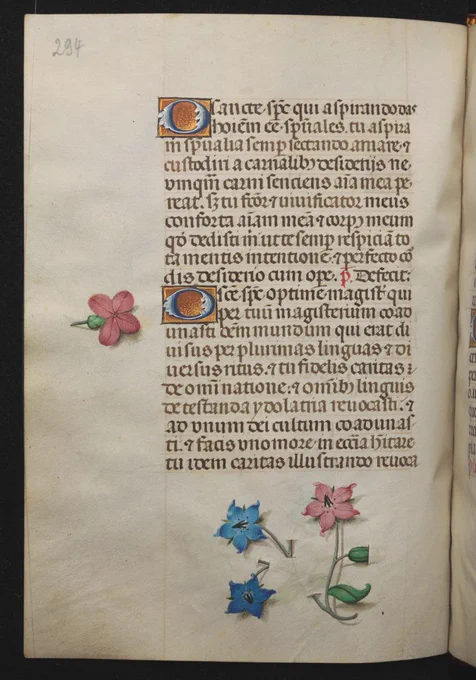 294
O sancte sp̄e qui aspirando das
hoīem eē sp̄uales. tu aspira
in sp̄ualia semp̱ sectando amare ⁊
custodiri a carnalibꝫ desiderijs ne
vmqūm carni senciens aīa mea pe
reat. sꝫ tu fc̄or ⁊ viuificator meus
conforta aīam meā ⁊ corpꝰ meum
qd̄ dedisti m̄ ut te semp̱ respiciā to
ta mentis intentione ⁊ perfecto co
dis desiderio cum ope. p̄. Defecit:
O sc̄e sp̄e optime magist̄ qui
per tuū magisterium coad
unasti bēm mundum qui erat di
uisus per plurimas linguas ⁊ di
uersus ritus. ⁊ tu fidelis caritas :
de om̄i natione. ⁊ om̄ibꝫ linguis
detestanda ydolatria reuocasti. ⁊
ad vnum dei cultum coadunas
ti. ⁊ facis vno more in ecc̄ia hītare
tu idem caritas illustrando reuoca